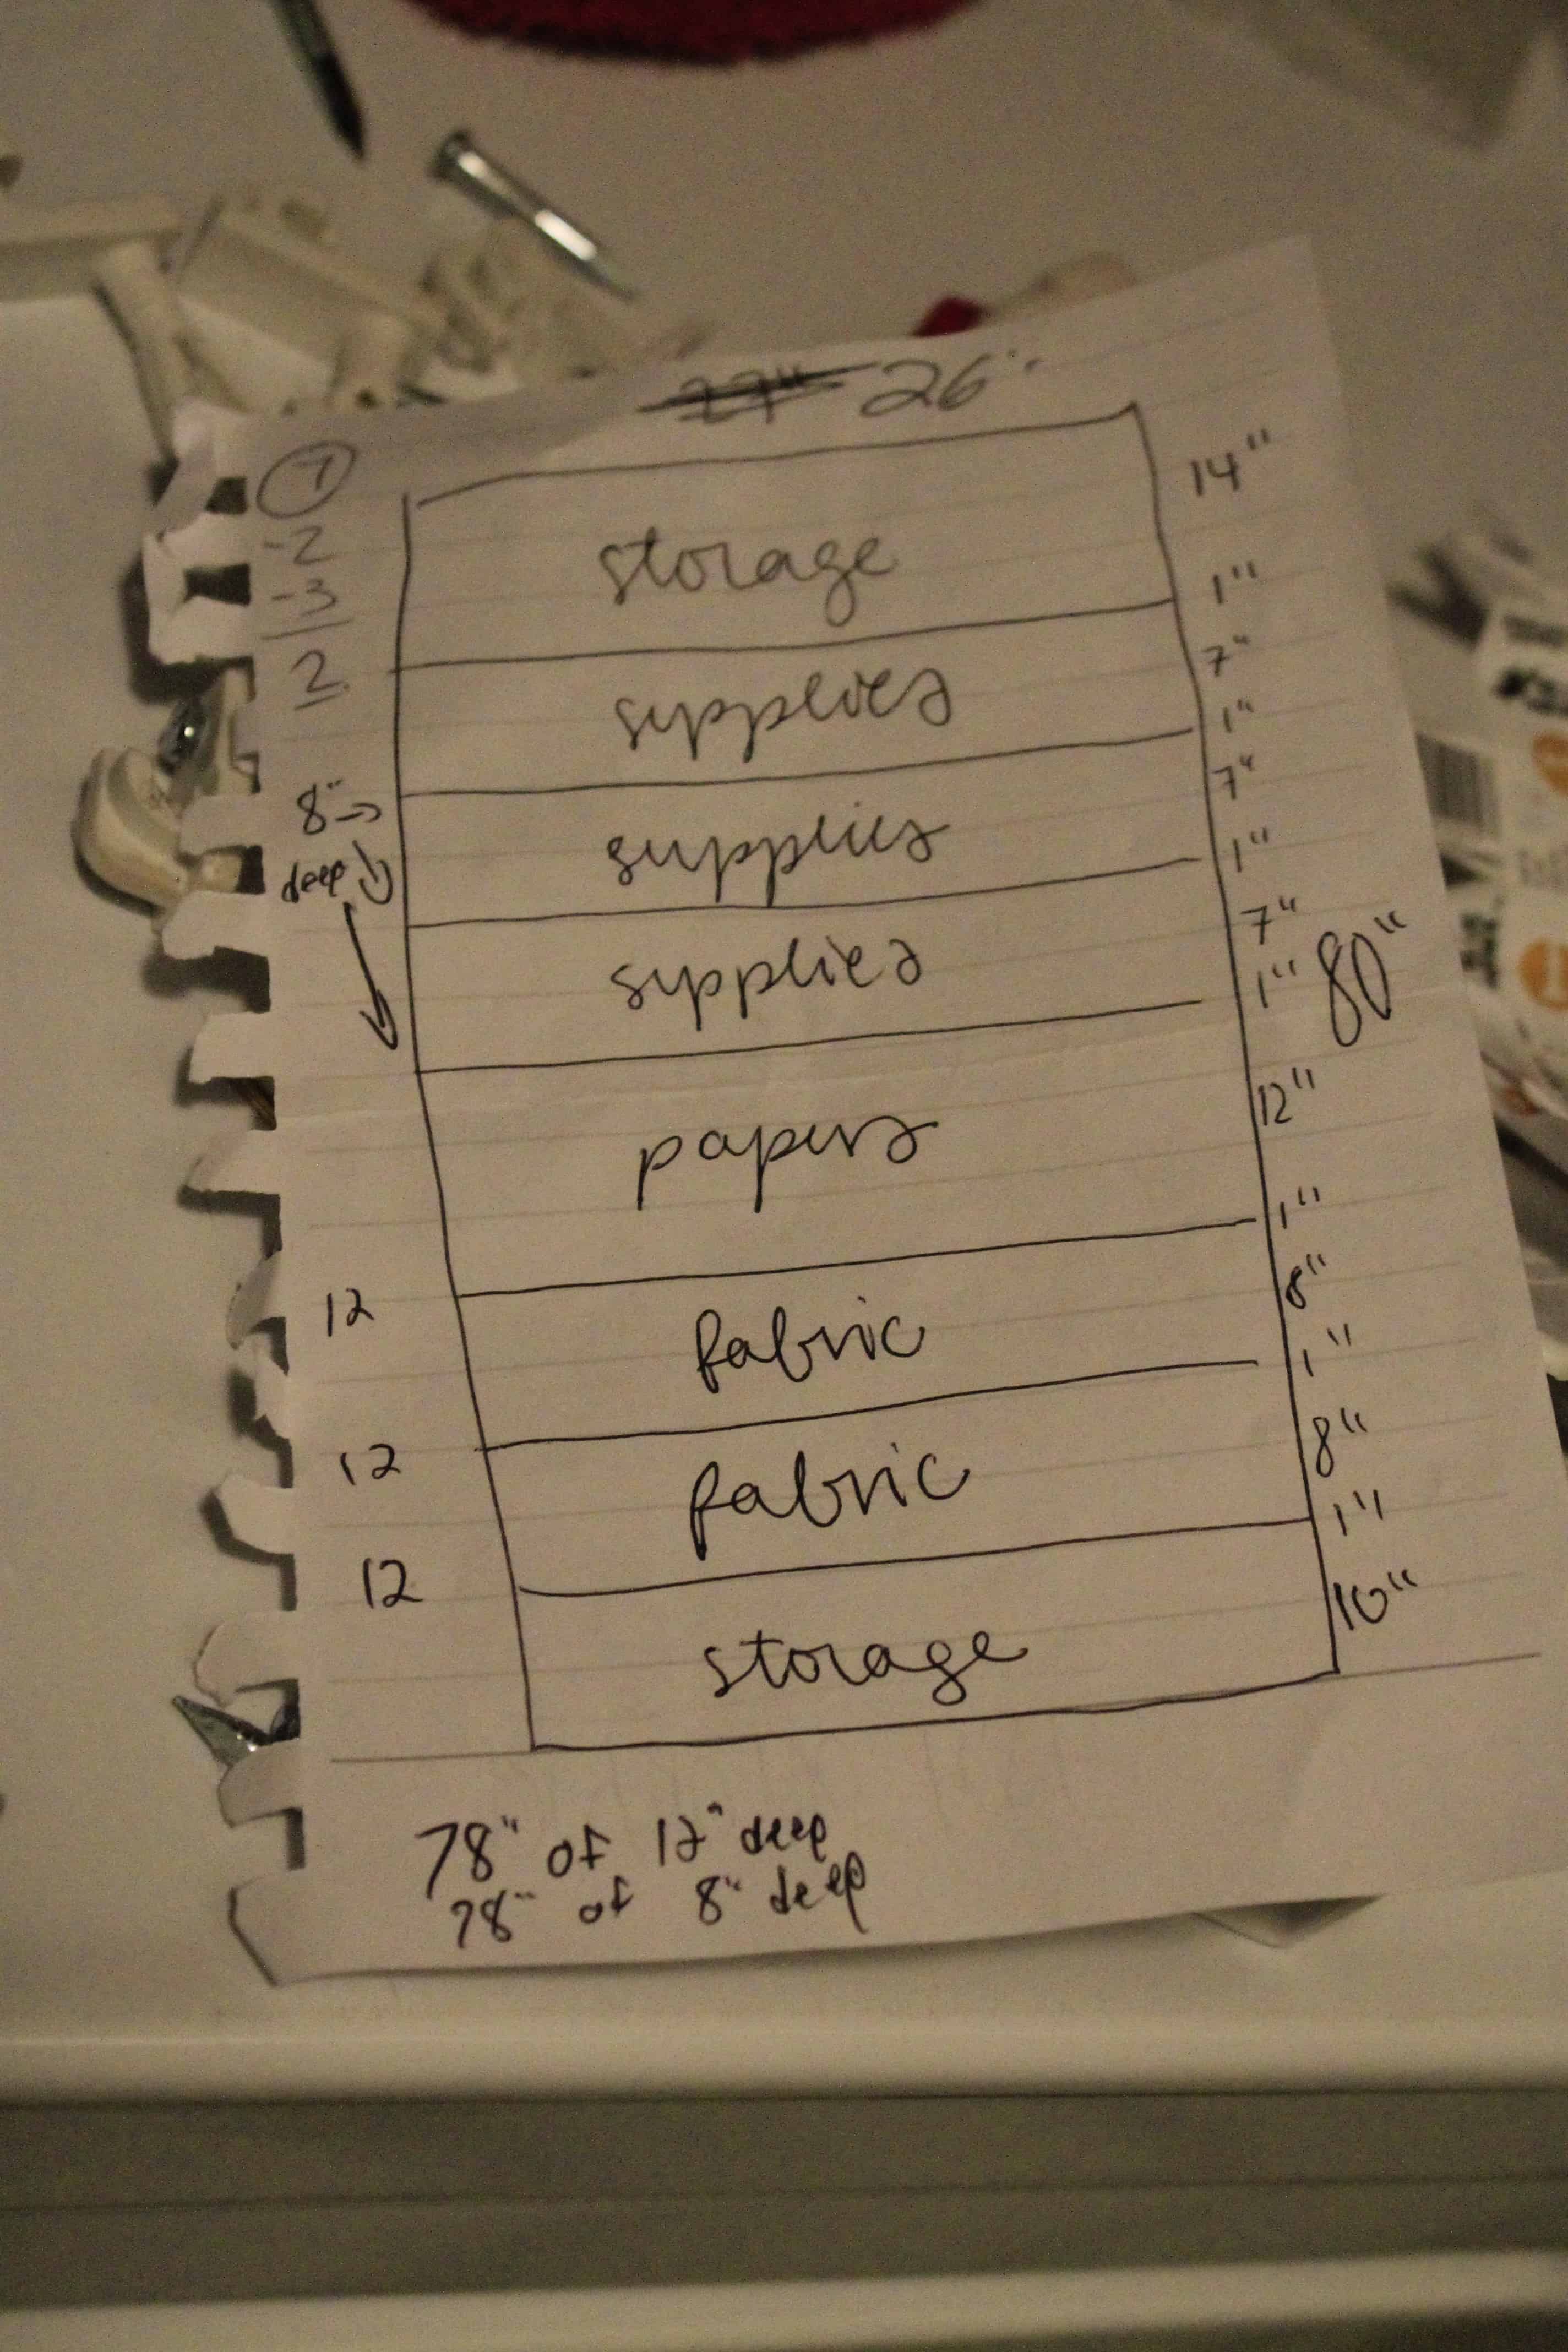 27" 26"
7
14"
-2
storage
-3
1"
2
7"
supplies
1"
8"
7"
supplies
deep
1"
7"
supplies
1"
80"
12"
papers
1"
12
8"
fabric
1"
12
8"
fabric
1"
12
10"
storage
78" of 12" deep
78" of 8" deep